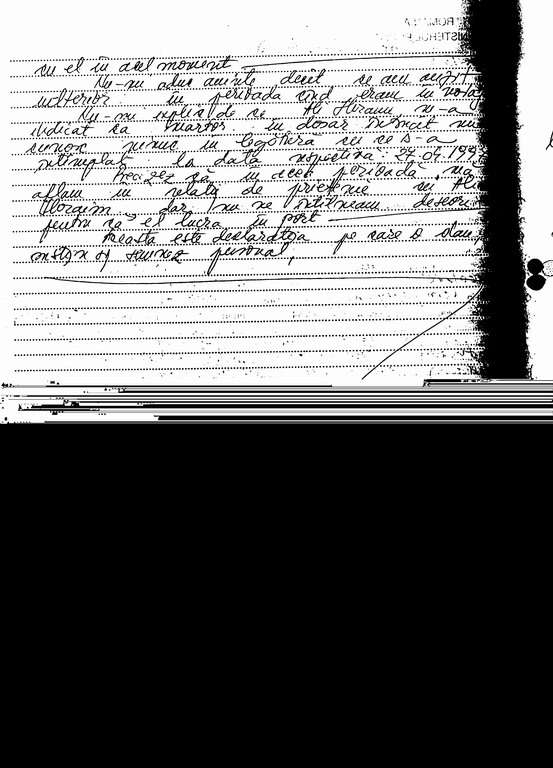 cu el în acel moment
Nu-mi aduc aminte decît ce am auzit
ulterior în perioada cînd eram în
Nu-mi explic de ce Ali Hiram m-a
indicat ca martor în dosar întrucît nu
cunosc nimic în legătura cu ce s-a
întîmplat la data respectiva: 27.04.199
Precizez că în acea perioadă ma
aflam în relatii de prietenie cu
dar nu ne întîlneam deseori
pentru că el lucra în port
Aceasta este declaratia pe care o dau,
sustin si semnez personal,